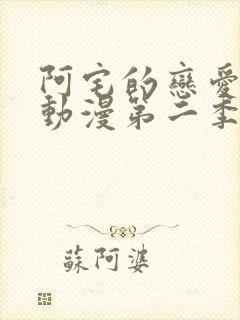 阿宅的戀愛
動漫第二季
蘇阿婆